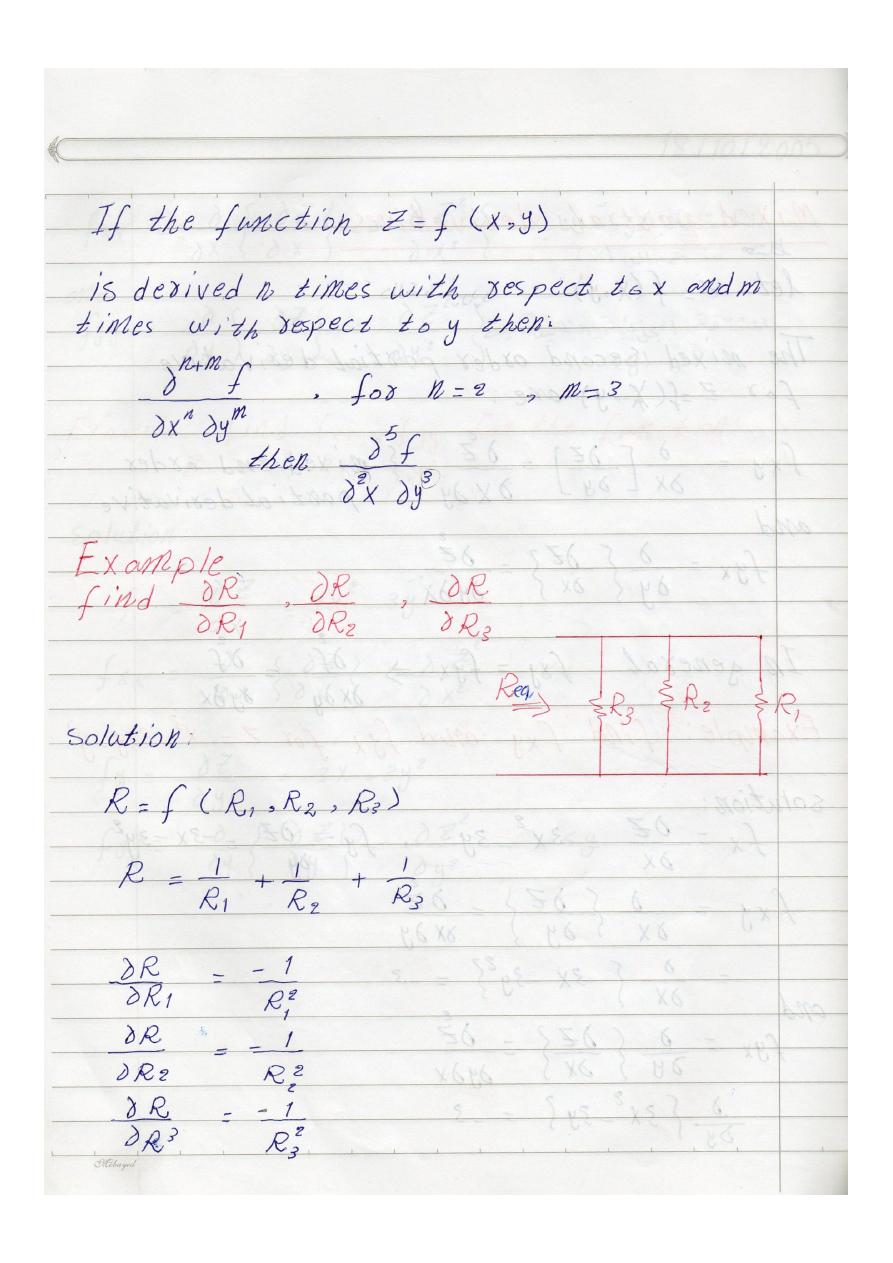 If the function Z = f (x,y)
is derived n times with respect to x and m
times with respect to y then:
∂ⁿ⁺ᵐ f / ∂xⁿ ∂yᵐ , for n = 2 , m = 3
then ∂⁵ f / ∂²x ∂y³
Example
find ∂R/∂R₁ , ∂R/∂R₂ , ∂R/∂R₃
Req. R₃ R₂ R₁
Solution:
R = f ( R₁ , R₂ , R₃ )
R = 1/R₁ + 1/R₂ + 1/R₃
∂R/∂R₁ = -1/R₁²
∂R/∂R₂ = -1/R₂²
∂R/∂R³ = -1/R₃²